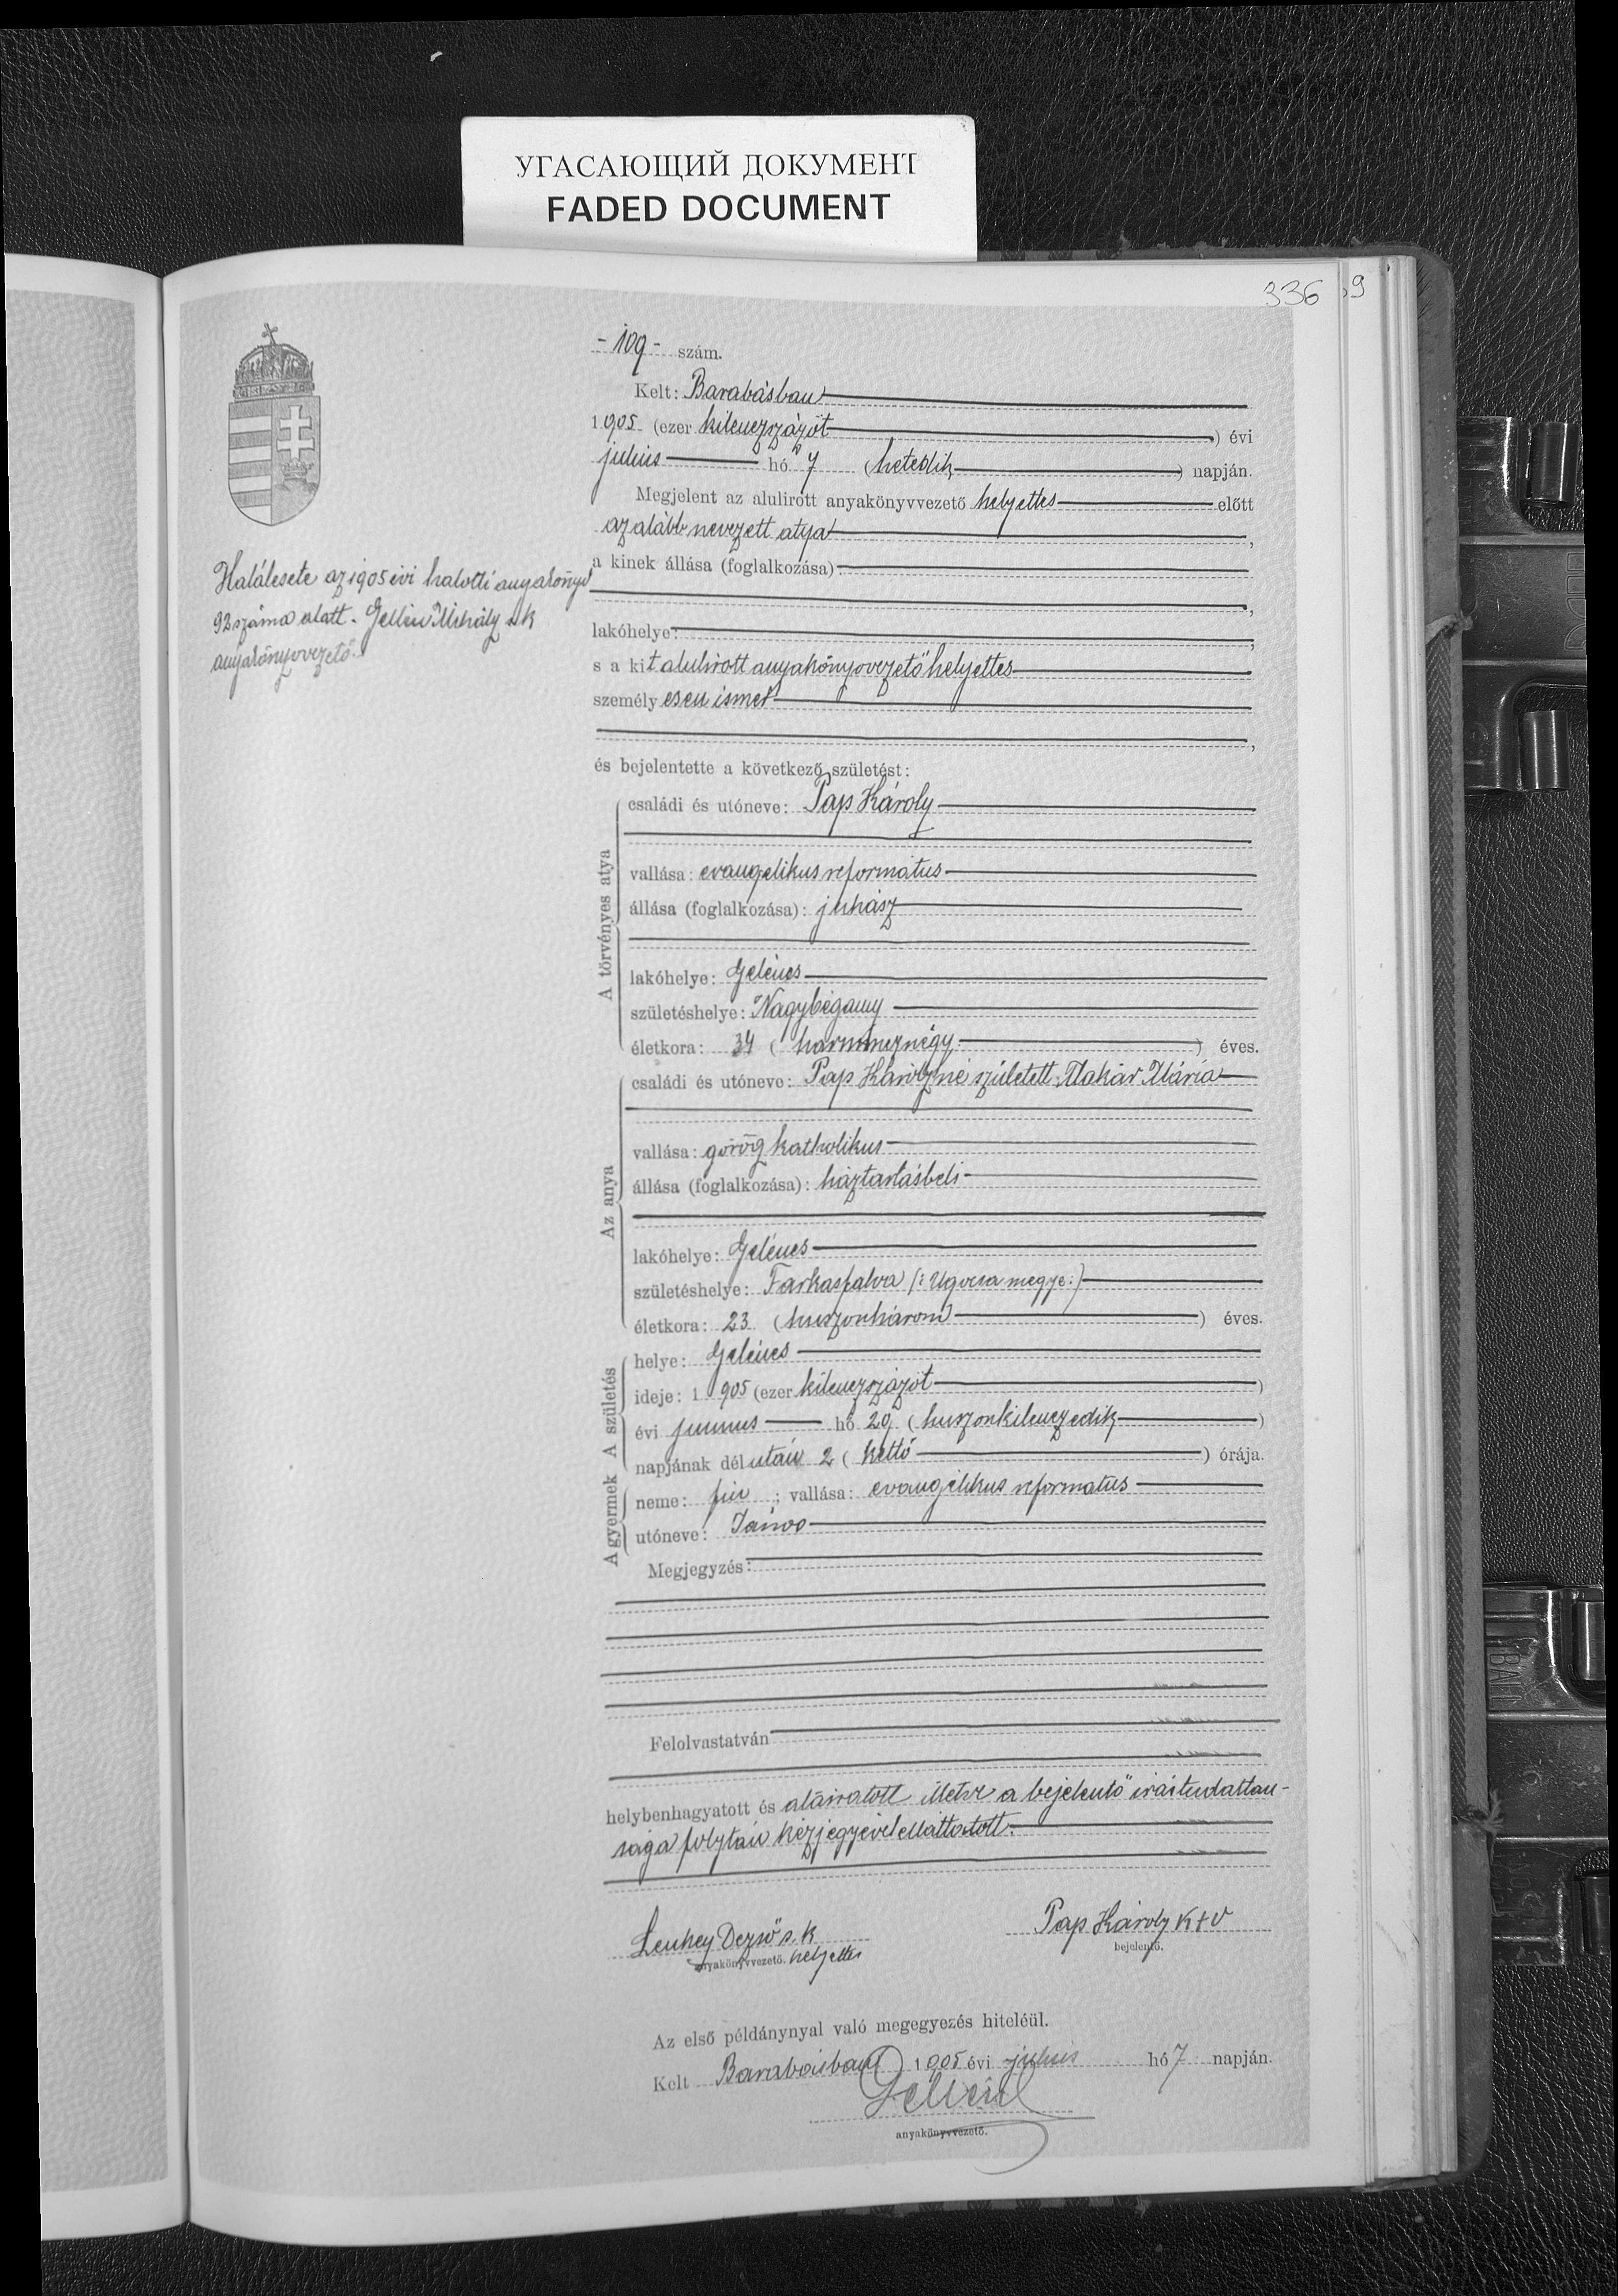 УГАСАЮЩИЙ ДОКУМЕНТ
FADED DOCUMENT
336
9
- 109 - szám.
Kelt: Barabásban
1905 (ezer kilenczszázöt) évi
julius hó 7 (hetedik) napján.
Megjelent az alulirott anyakönyvvezető helyettes előtt
az alább nevezett atya,
a kinek állása (foglalkozása):
,
lakóhelye:,
s a kit alulirott anyakönyvvezető helyettes
személyesen ismer
,
és bejelentette a következő születést:
A törvényes atya
családi és utóneve: Pap Károly
vallása: evangelikus református
állása (foglalkozása): juhász
lakóhelye: Gelénes
születéshelye: Nagybégany
életkora: 34 (harmincznégy) éves.
Az anya
családi és utóneve: Pap Károlyné született Makár Mária
vallása: görög katholikus
állása (foglalkozása): háztartásbeli
lakóhelye: Gelénes
születéshelye: Farkasfalva (: Ugocsa megye :)
életkora: 23 (huszonhárom) éves.
A születés
helye: Gelénes
ideje: 1905 (ezer kilenczszázöt)
évi junius hó 29 (huszonkilenczedik)
napjának délután 2 (kettő) órája.
A gyermek
neme: fiu; vallása: evangelikus református
utóneve: János
Megjegyzés:
Felolvastatván
helybenhagyatott és aláiratott illetve a bejelentő irástudatlan-
sága folytán kézjegyével elláttatott.
Lenkey Dezső s. k.
anyakönyvvezető. helyettes
Pap Károly k + v
bejelentő.
Az első példánynyal való megegyezés hiteléül.
Kelt Barabásban 1905 évi julius hó 7 napján.
Gellén
anyakönyvvezető.
Halálesete az 1905 évi halotti anyakönyv
92 száma alatt. Gellén Mihály s k
anyakönyvvezető.